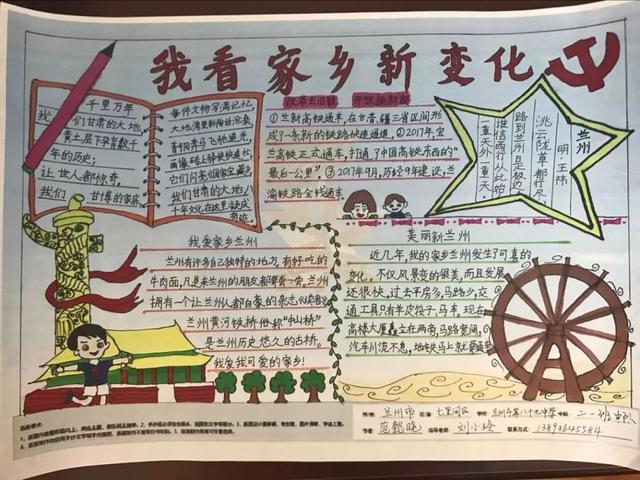 我看家乡新变化
千里万年
我们甘肃的大地
黄土层下孕育数千
年的历史;
让世人都惊奇。
我们 甘博的家底
每件文物写满记忆
大地湾里彩陶
青铜奔马飞驰追光
画像砖上驿使
它们闪亮《国家宝藏》
我们甘肃的大地!
千年文化在这里
奇迹。
改革去旧貌 开放换新颜
①兰新高铁通车,在甘青疆三省区间形
成了一条新的铁路快速通道,②2017年,宝
兰高铁正式通车,打通了中国高铁东西的“
最后一公里”③2017年9月,历经9年建设,兰
渝铁路全线通车
兰州
明·王祎
洮云陇草都行尽,
路到兰州是极边。
谁信西行从此始,
一重天外一重天。
我爱家乡兰州
兰州有许多自己独特的地方,有好吃的
牛肉面,凡是来兰州的朋友都要尝一尝,兰州
拥有一个让兰州人都自豪的杂志《读者》
兰州黄河铁桥俗称“中山桥”
是兰州历史悠久的古桥。
我爱我可爱的家乡!
美丽新兰州
近几年,我的家乡兰州发生了可喜的
变化,不仅风景变的很美,而且发展
还很快,过去平房多,马路少,交
通工具只有羊皮筏子,马车,现在
高楼大厦矗立在两旁,马路宽阔,
汽车川流不息,地铁马上就要通
市/州: 兰州市 区/县: 七里河区 学校: 兰州市第八十九中学 中队: 二一班中队
作者: 范懿晓 辅导老师: 刘小玲 联系方式: 13893645584